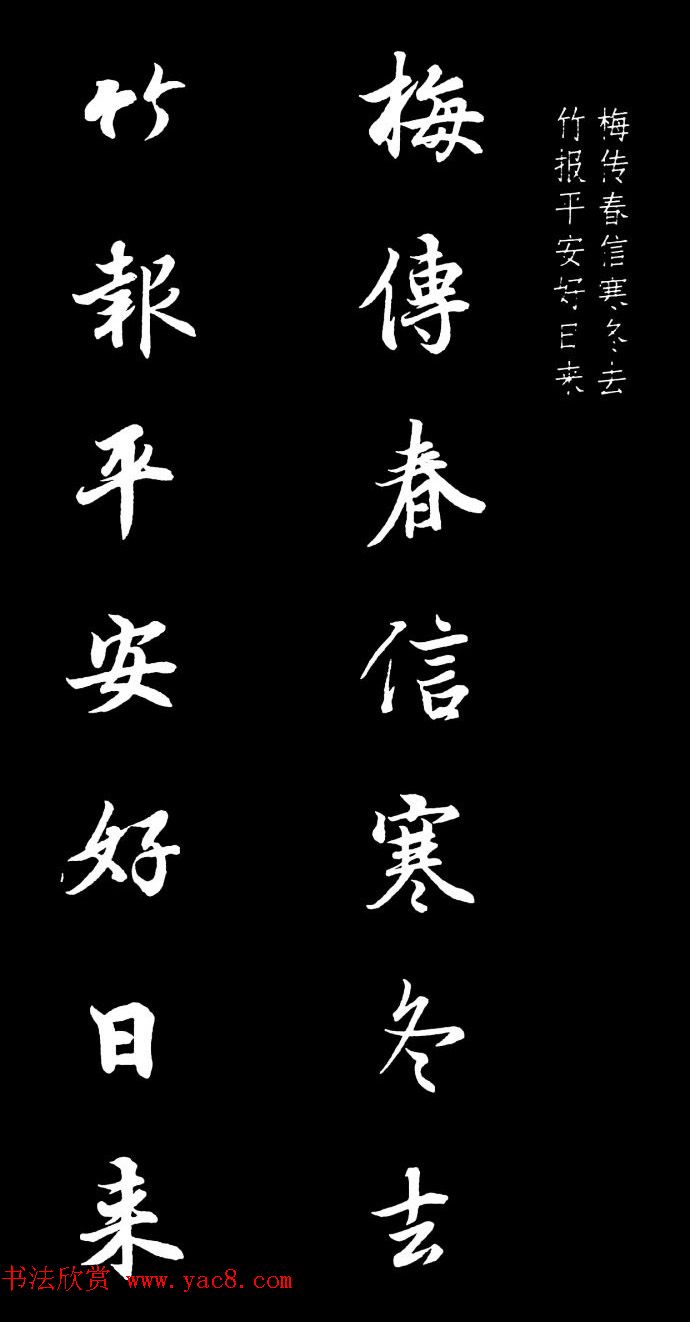 梅传春信寒冬去
竹报平安好日来
梅傳春信寒冬去
竹報平安好日来
书法欣赏 www.yac8.com